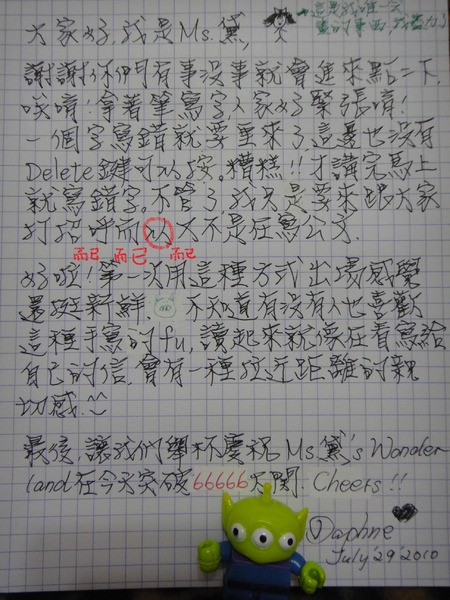 大家好,我是Ms.黛,
這是我唯一次
畫的東西,我盡力了
謝謝你們有事沒事就會進來點一下,
唉唷!拿著筆寫字,人家好緊張唷!
一個字寫錯就要重來了這邊也沒有
Delete鍵可以按。糟糕!!才講完馬上
就寫錯字。不管了,我只是要來跟大家
打招呼而以又不是在寫公文.
而已 而已 而已
好啦!第一次用這種方式出場感覺
還挺新鮮 不知道有沒有人也喜歡
這種手寫的fu,讀起來就像在看寫給
自己的信.會有一種拉近距離的親
切感.^^
最後,讓我們舉杯慶祝Ms.黛's Wonder
land在今天突破66666大關.Cheers!!
Daphne
July'29'2010